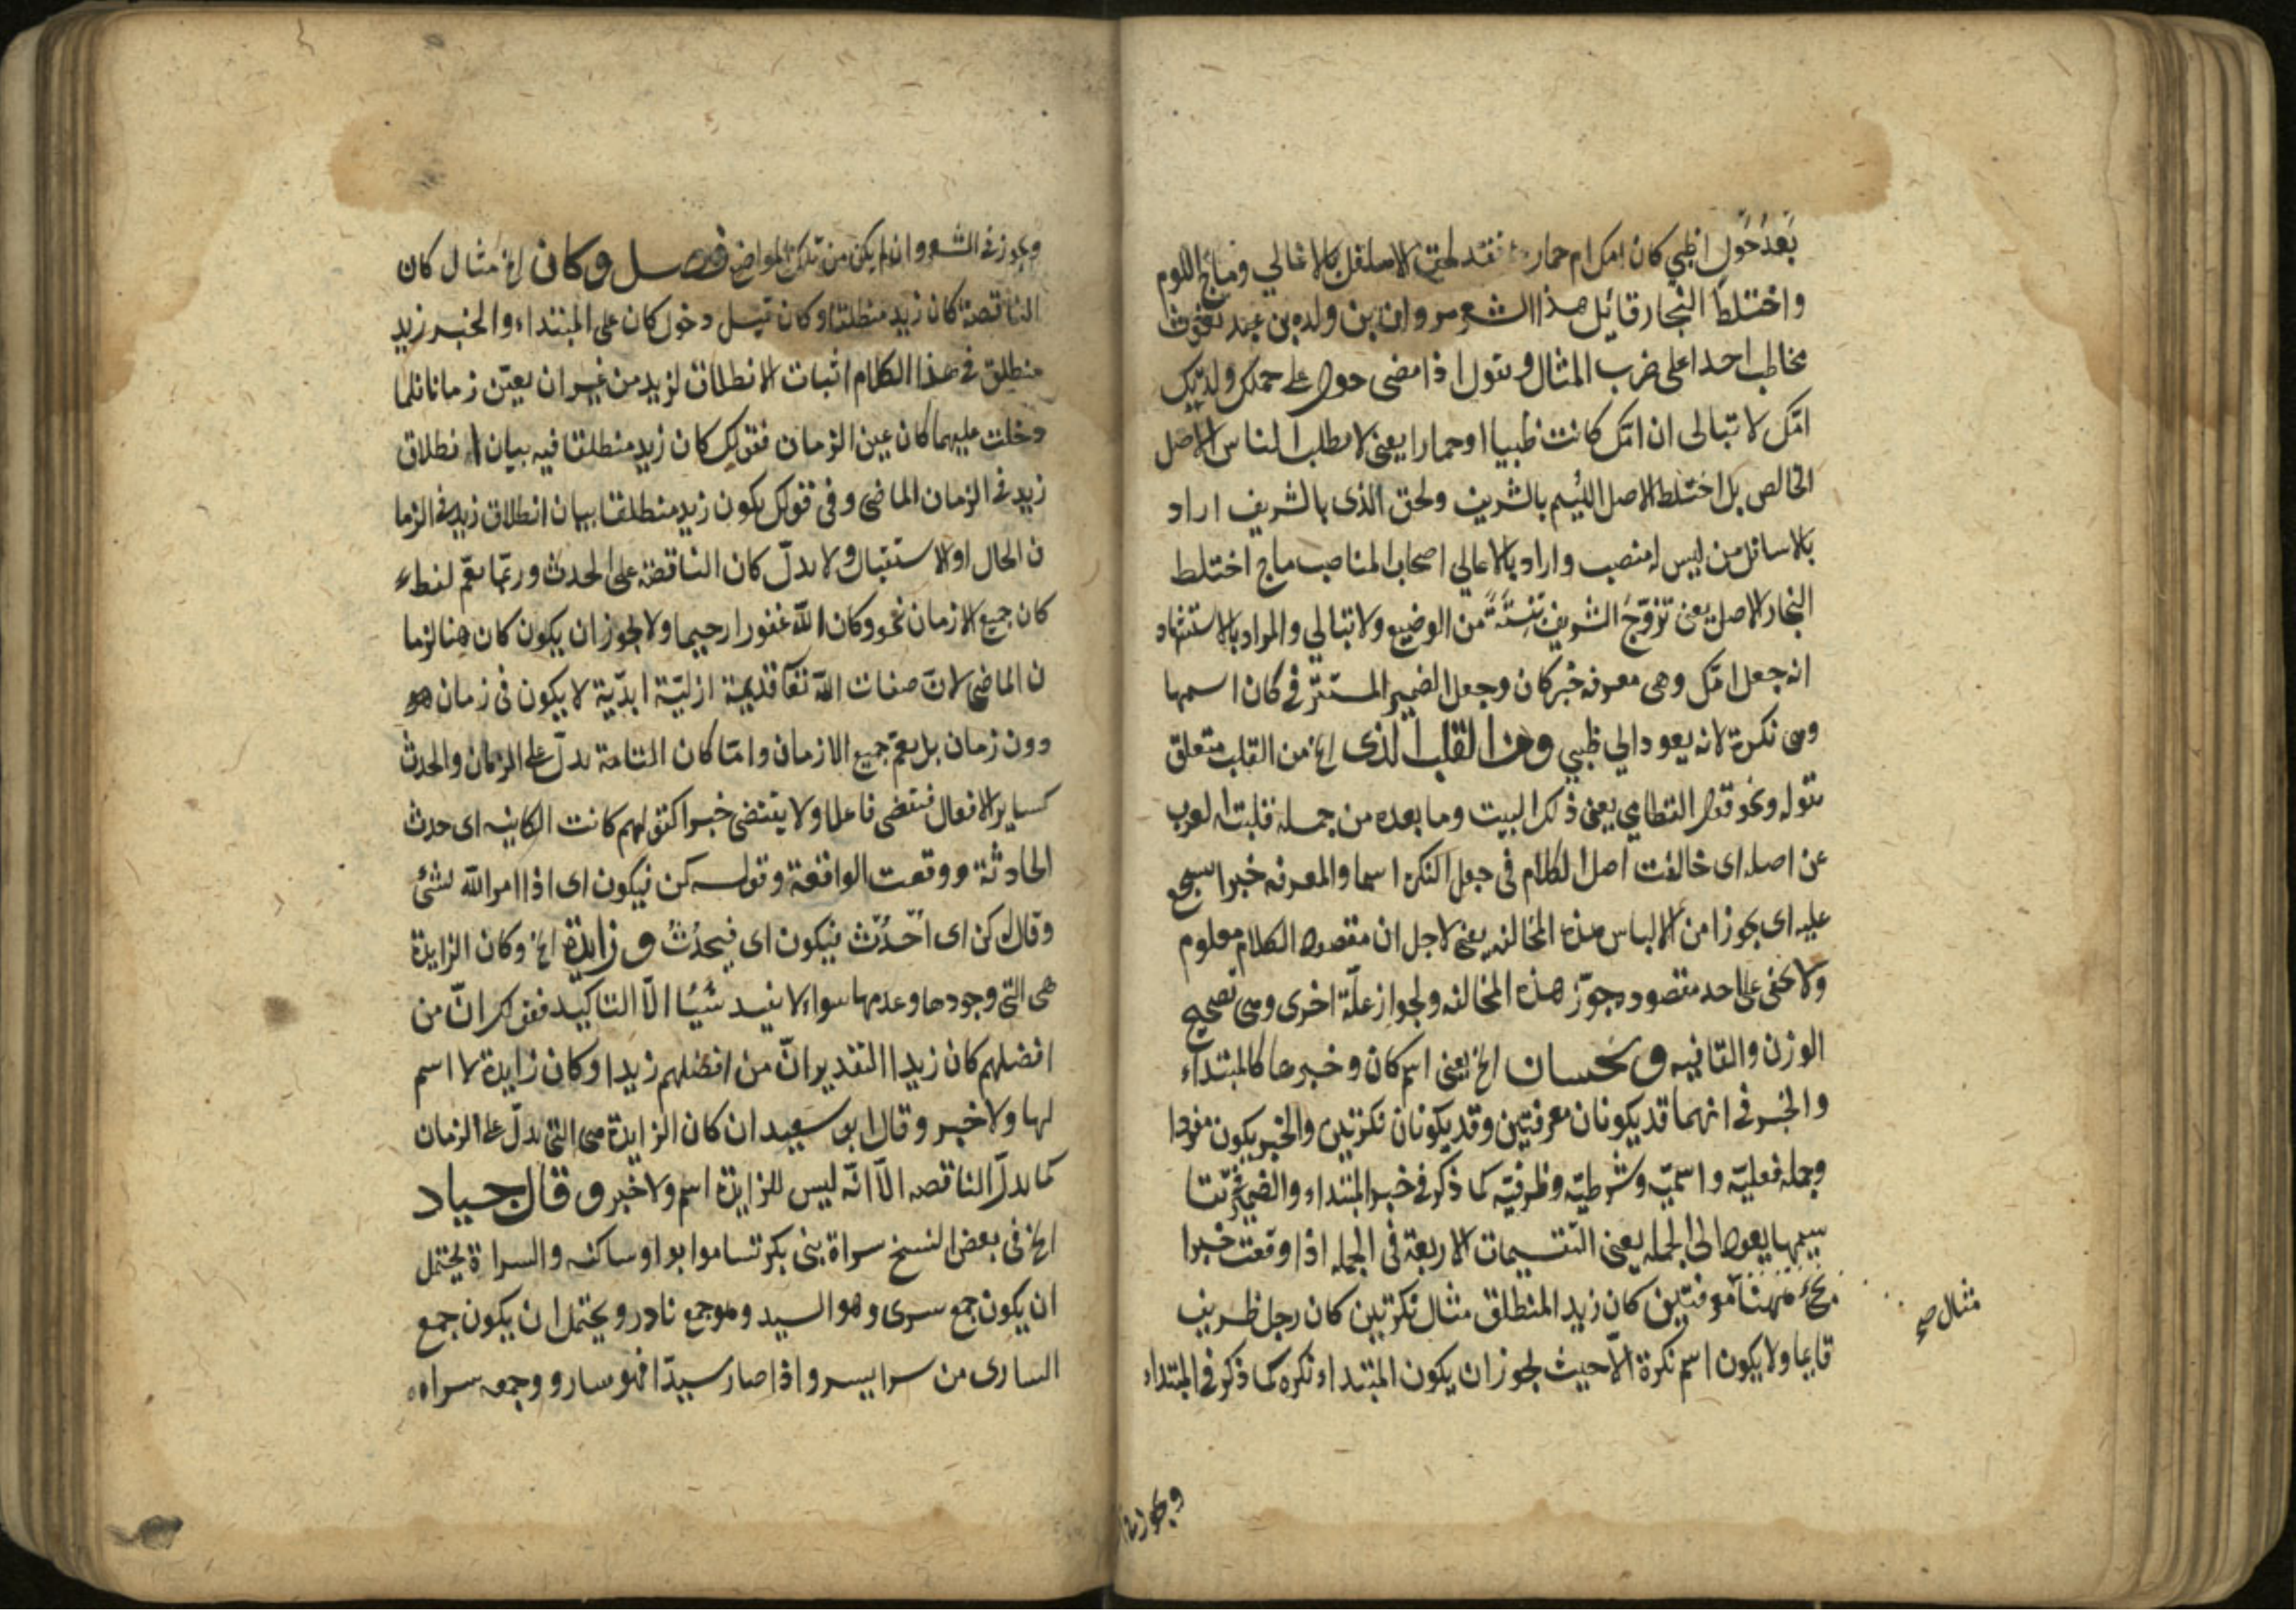 بَعْدَ حَوْلٍ اظبي كان امك ام حمار فقد لحق الاسافل بالاعالي وماج اللوم
واختلط النجار قائل هذا الشعر مروان بن ولده بن عبد يغوث
مخاطب احدا على ضرب المثال ويقول اذا مضى حول على حملك ولدتك
امّك لا تبالى ان امّك كانت ظبيا او حمارا يعنى لا يطلب الناس الاصل
الخالص بل اختلط الاصل اللئيم بالشريف ولحق الذى بالشريف اراد
بالاسافل من ليس له منصب واراد بالاعالي اصحاب المناصب ماج اختلط
النجار الاصل يعنى تزوّج الشريف من الوضيع ولا تبالي والمراد بالاستشهاد
انه جعل امّك وهى معرفه خبر كان وجعل الضمير المستتر فى كان اسمها
وهى نكرة لانه يعود الي ظبي وهذا القلب الذى الخ من القلب متعلق
بقوله ونحو قول القطامي يعنى ذلك البيت وما بعده من جمله قلبت العرب
عن اصله اى خالفت اصل الكلام فى جعل النكره اسما والمعرفه خبرا
عليه اى يجوز امن الالباس هذه المخالفه يعنى لاجل ان مقصود الكلام معلوم
ولا يخفى على احد مقصوده جوّز هذه المخالفه ولجواز علّة اخرى وهى تصحيح
الوزن والقافيه ويحسان الخ يعنى اسم كان وخبرها كالمبتداء
والخبر فى انهما قد يكونان معرفتين وقد يكونان نكرتين والخبر يكون مفردا
وجمله فعليّة واسميّة وشرطيّة وظرفيّة كما ذكر فى خبر المبتداء والضمير فى تقا
سيمها يعود الى الجمله يعنى التقسيمات الاربعة فى الجمله اذا وقعت خبرا
يجئ ههنا معرفتين كان زيد المنطلق مثال نكرتين كان رجل ظريف
قايما ولا يكون اسم نكرة الّا حيث يجوز ان يكون المبتداء نكره كما ذكر فى المبتداء
مثال صح
ويجوز فى
ويجوز فى الشعر وان لم يكن من تلك المواضع فصل وكان الخ مثال كان
الناقصة كان زيد منطلقا وكان قبل دخول كان على المبتداء والخبر زيد
منطلق فى هذا الكلام اثبات الانطلاق لزيد من غير ان يعيّن زمانا فلما
دخلت عليهما كان عين الزمان فقولك كان زيد منطلقا فيه بيان انطلاق
زيد فى الزمان الماضى وفى قولك يكون زيد منطلقا بيان انطلاق زيد فى الزما
ن الحال او الاستقبال ولا يدلّ كان الناقصة على الحدث وربّما يعمّ لفظ
كان جميع الازمان نحو وكان الله غفورا رحيما ولا يجوز ان يكون كان هنا لزما
ن الماضى لانّ صفات الله تعآ قديمة ازليّة ابدّية لا يكون فى زمان
دون زمان بل يعمّ جميع الازمان وامّا كان التامة يدلّ على الزمان والحدث
كساير الافعال فتقضى فاعلا ولا يقتضى خبرا كقولهم كانت الكاينه اى حدث
الحادثة ووقعت الواقعة وقوله كن فيكون اى اذا امر الله لشئ
وقال له كن اى اُحْدُثْ فيكون اى فيحدُثُ وزايدة الخ وكان الزايدة
هى التى وجودها وعدمها سواء لا يفيد شيئا الّا التاكيد فقولك انّ من
افضلهم كان زيدا التقدير انّ من افضلهم زيدا وكان زايدة لا اسم
لها ولا خبر وقال ابو سعيد ان كان الزايدة هى التى يدلّ على الزمان
كما يدلّ الناقصه الّا انّه ليس للزايدة اسم ولا خبر وقال جياد
الخ فى بعض النسخ سراة بنى بكر تساموا بواو ساكنه والسراة يحتمل
ان يكون جمع سرى وهو السيد وهو جمع نادر ويحتمل ان يكون جمع
السارى من سرا يسرو اذا صار سيدّا فهو سار وجمعه سراه